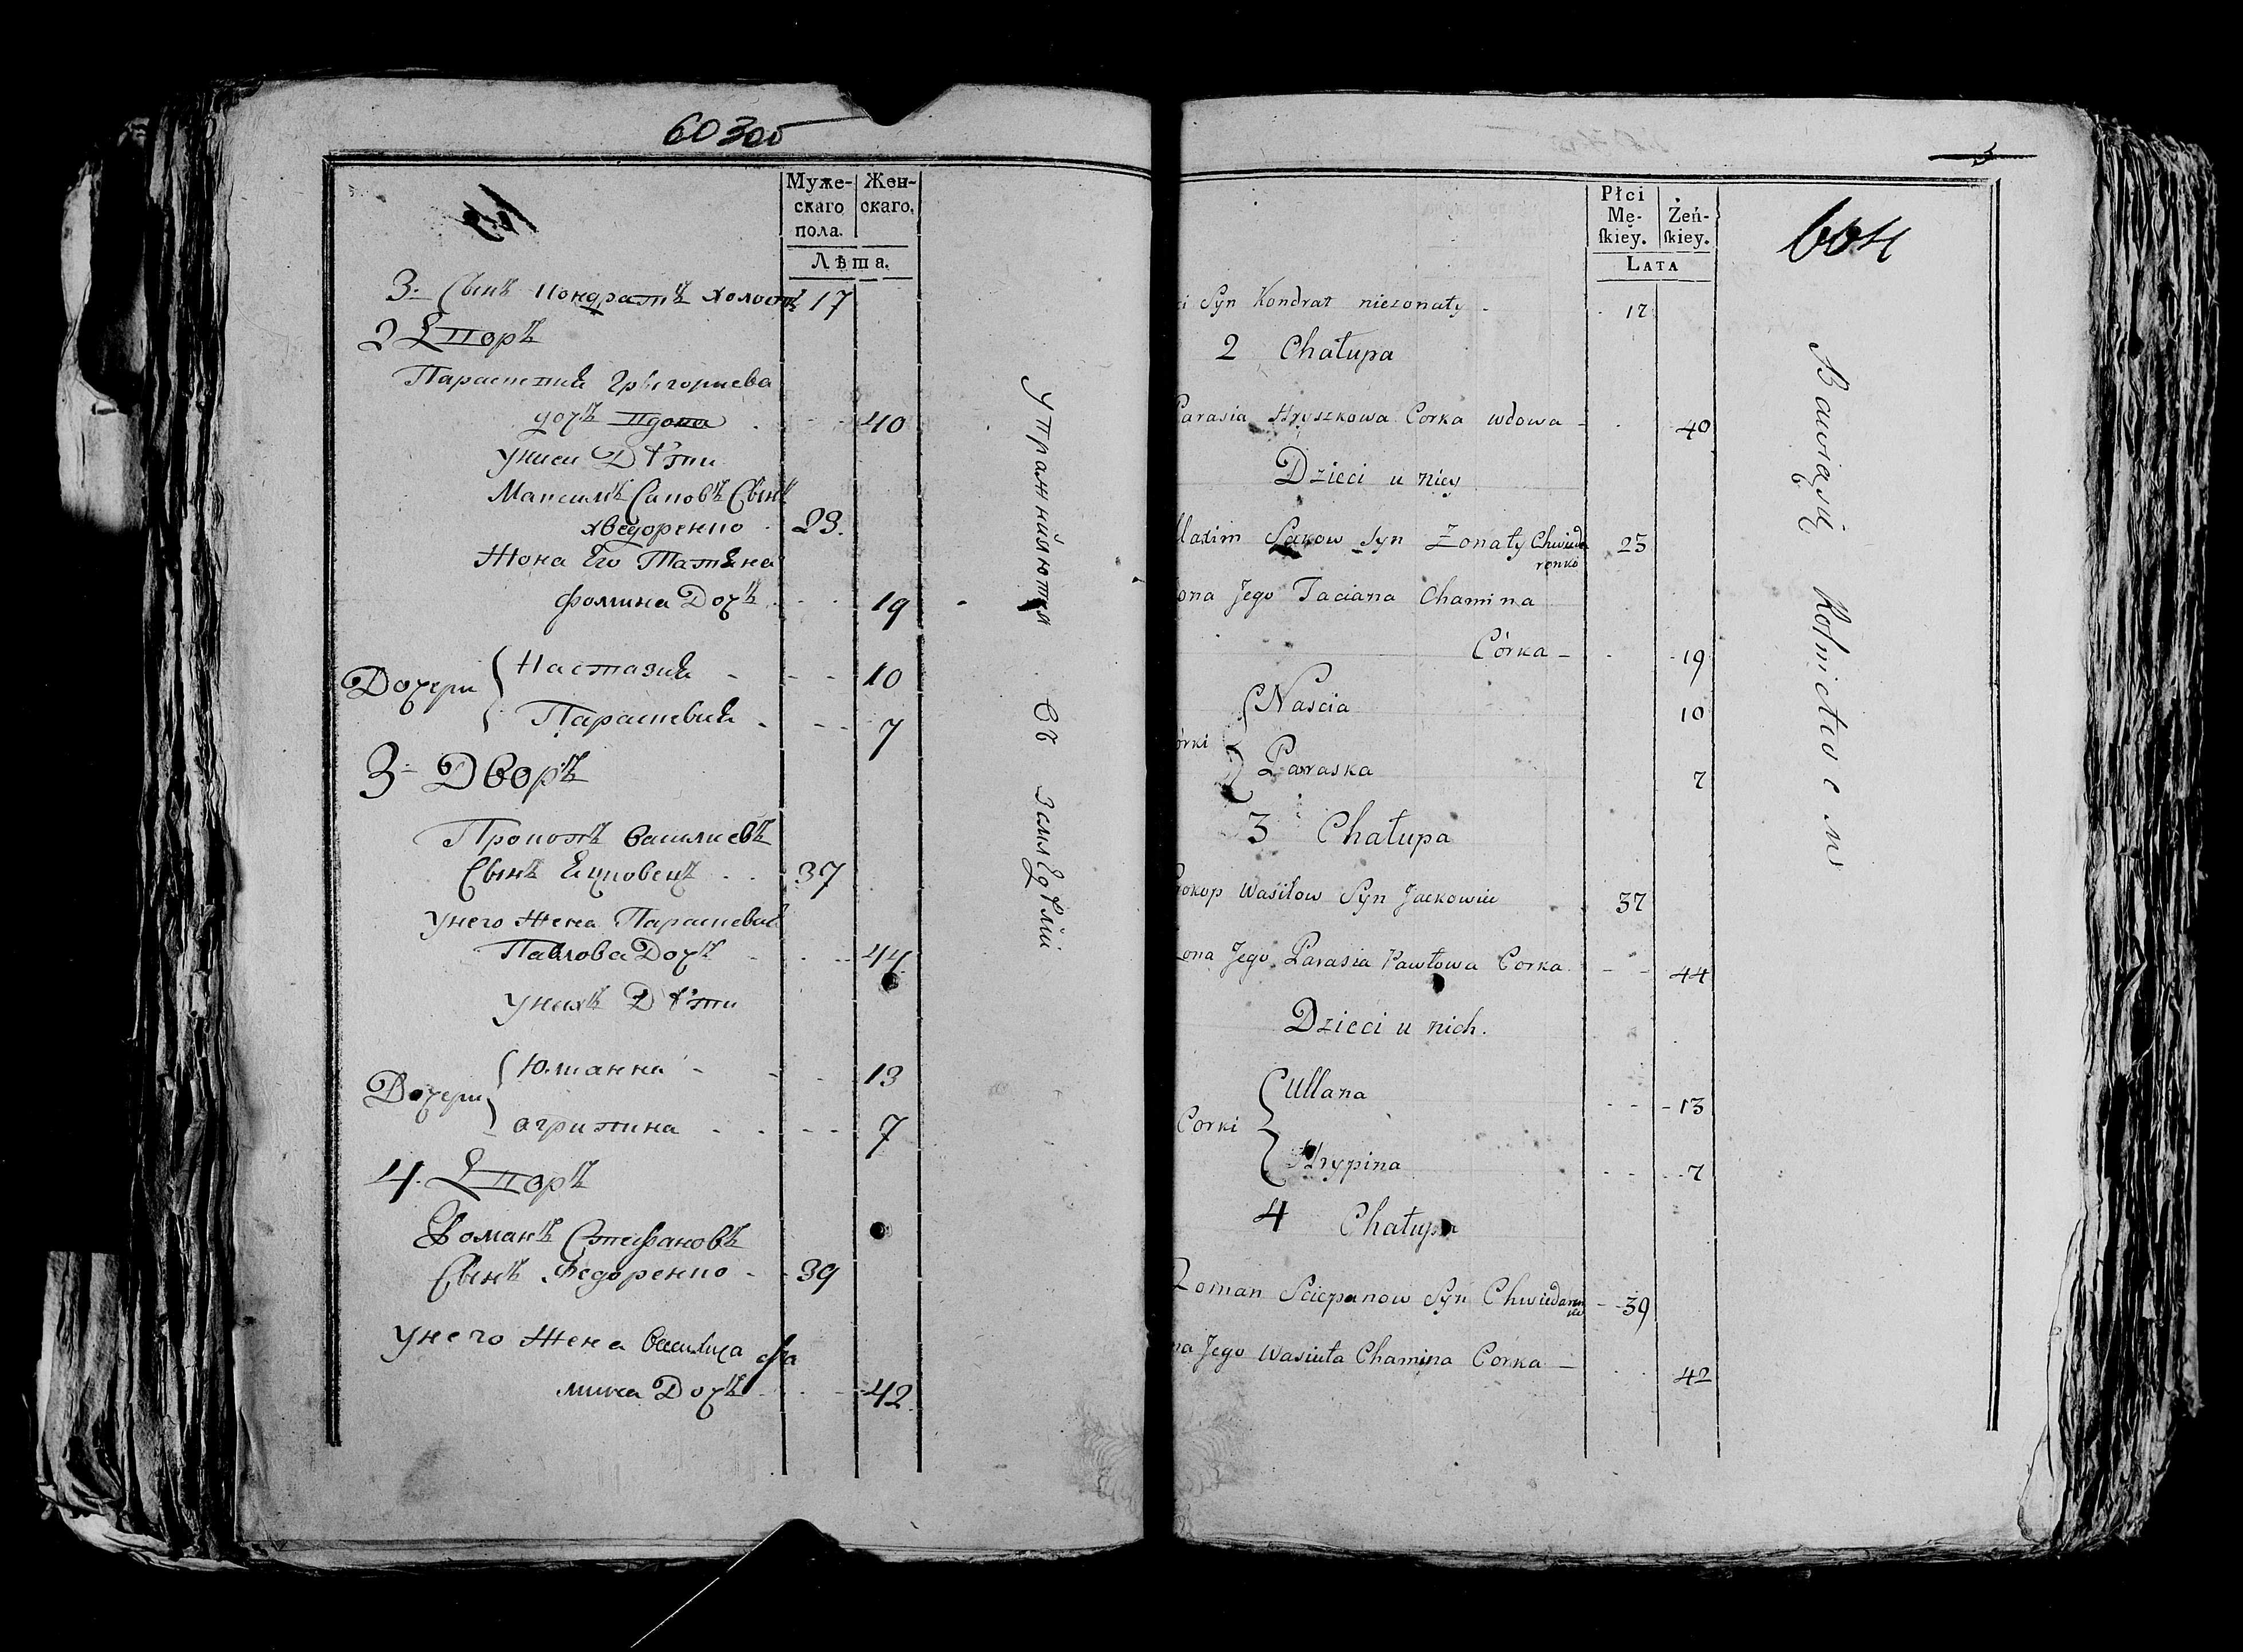 603об
Муже-
скаго
пола.
Жен-
скаго.
Лѣта.
3. Сынъ Кондратъ холостъ 17
2 Дворъ
Параскевия Григориева
дочь вдова 40
У ниси Дѣти
Максимъ Саковъ Сынъ
Хведоренко 23.
Жона Его Татяна
Фомина Дочь 19
Дочери
Настазия 10
Параскевия 7
3 Дворъ
Прокопъ Василиевъ
Сынъ Яцковецъ 37
У него Жена Параскевия
Павлова Дочь 44
У нихъ Дѣти
Дочери
Юлианна 13
Агрипина 7
4. Дворъ
Романъ Стефановъ
Сынъ Федоренко 39
У него Жена Василиса Фа
мина Дочь 42.
Упражняются въ Земледѣлии
3
604
Płci
Mę-
skiey.
Żeń-
skiey.
LATA
Syn Kondrat niezonaty 17
2 Chałupa
Parasia Hryszkowa Corka wdowa 40
Dzieci u niey
Sakow Syn Zonaty Chwiedo
ronko 23
ona Jego Taciana Chamina
Córka 19
Nascia 10
órki
Paraska 7
3 Chałupa
rokop Wasilow Syn Jackowiec 37
ona Jego Parasia Pawłowa Corka 44
Dzieci u nich.
Ullana 13
Corki
Hrypina 7
4 Chałupa
Roman Sciepanow Syn 39
na Jego Wasiuta Chamina Córka 42
Bawią się Rolnictwem